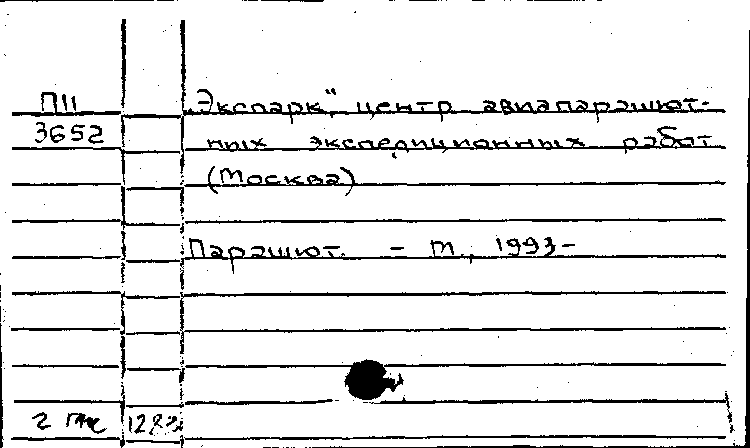 П11
3652
„Экспарк", центр авиапарашют-
ных экспедиционных работ
(Москва)
Парашют. – М., 1993–
2 1283